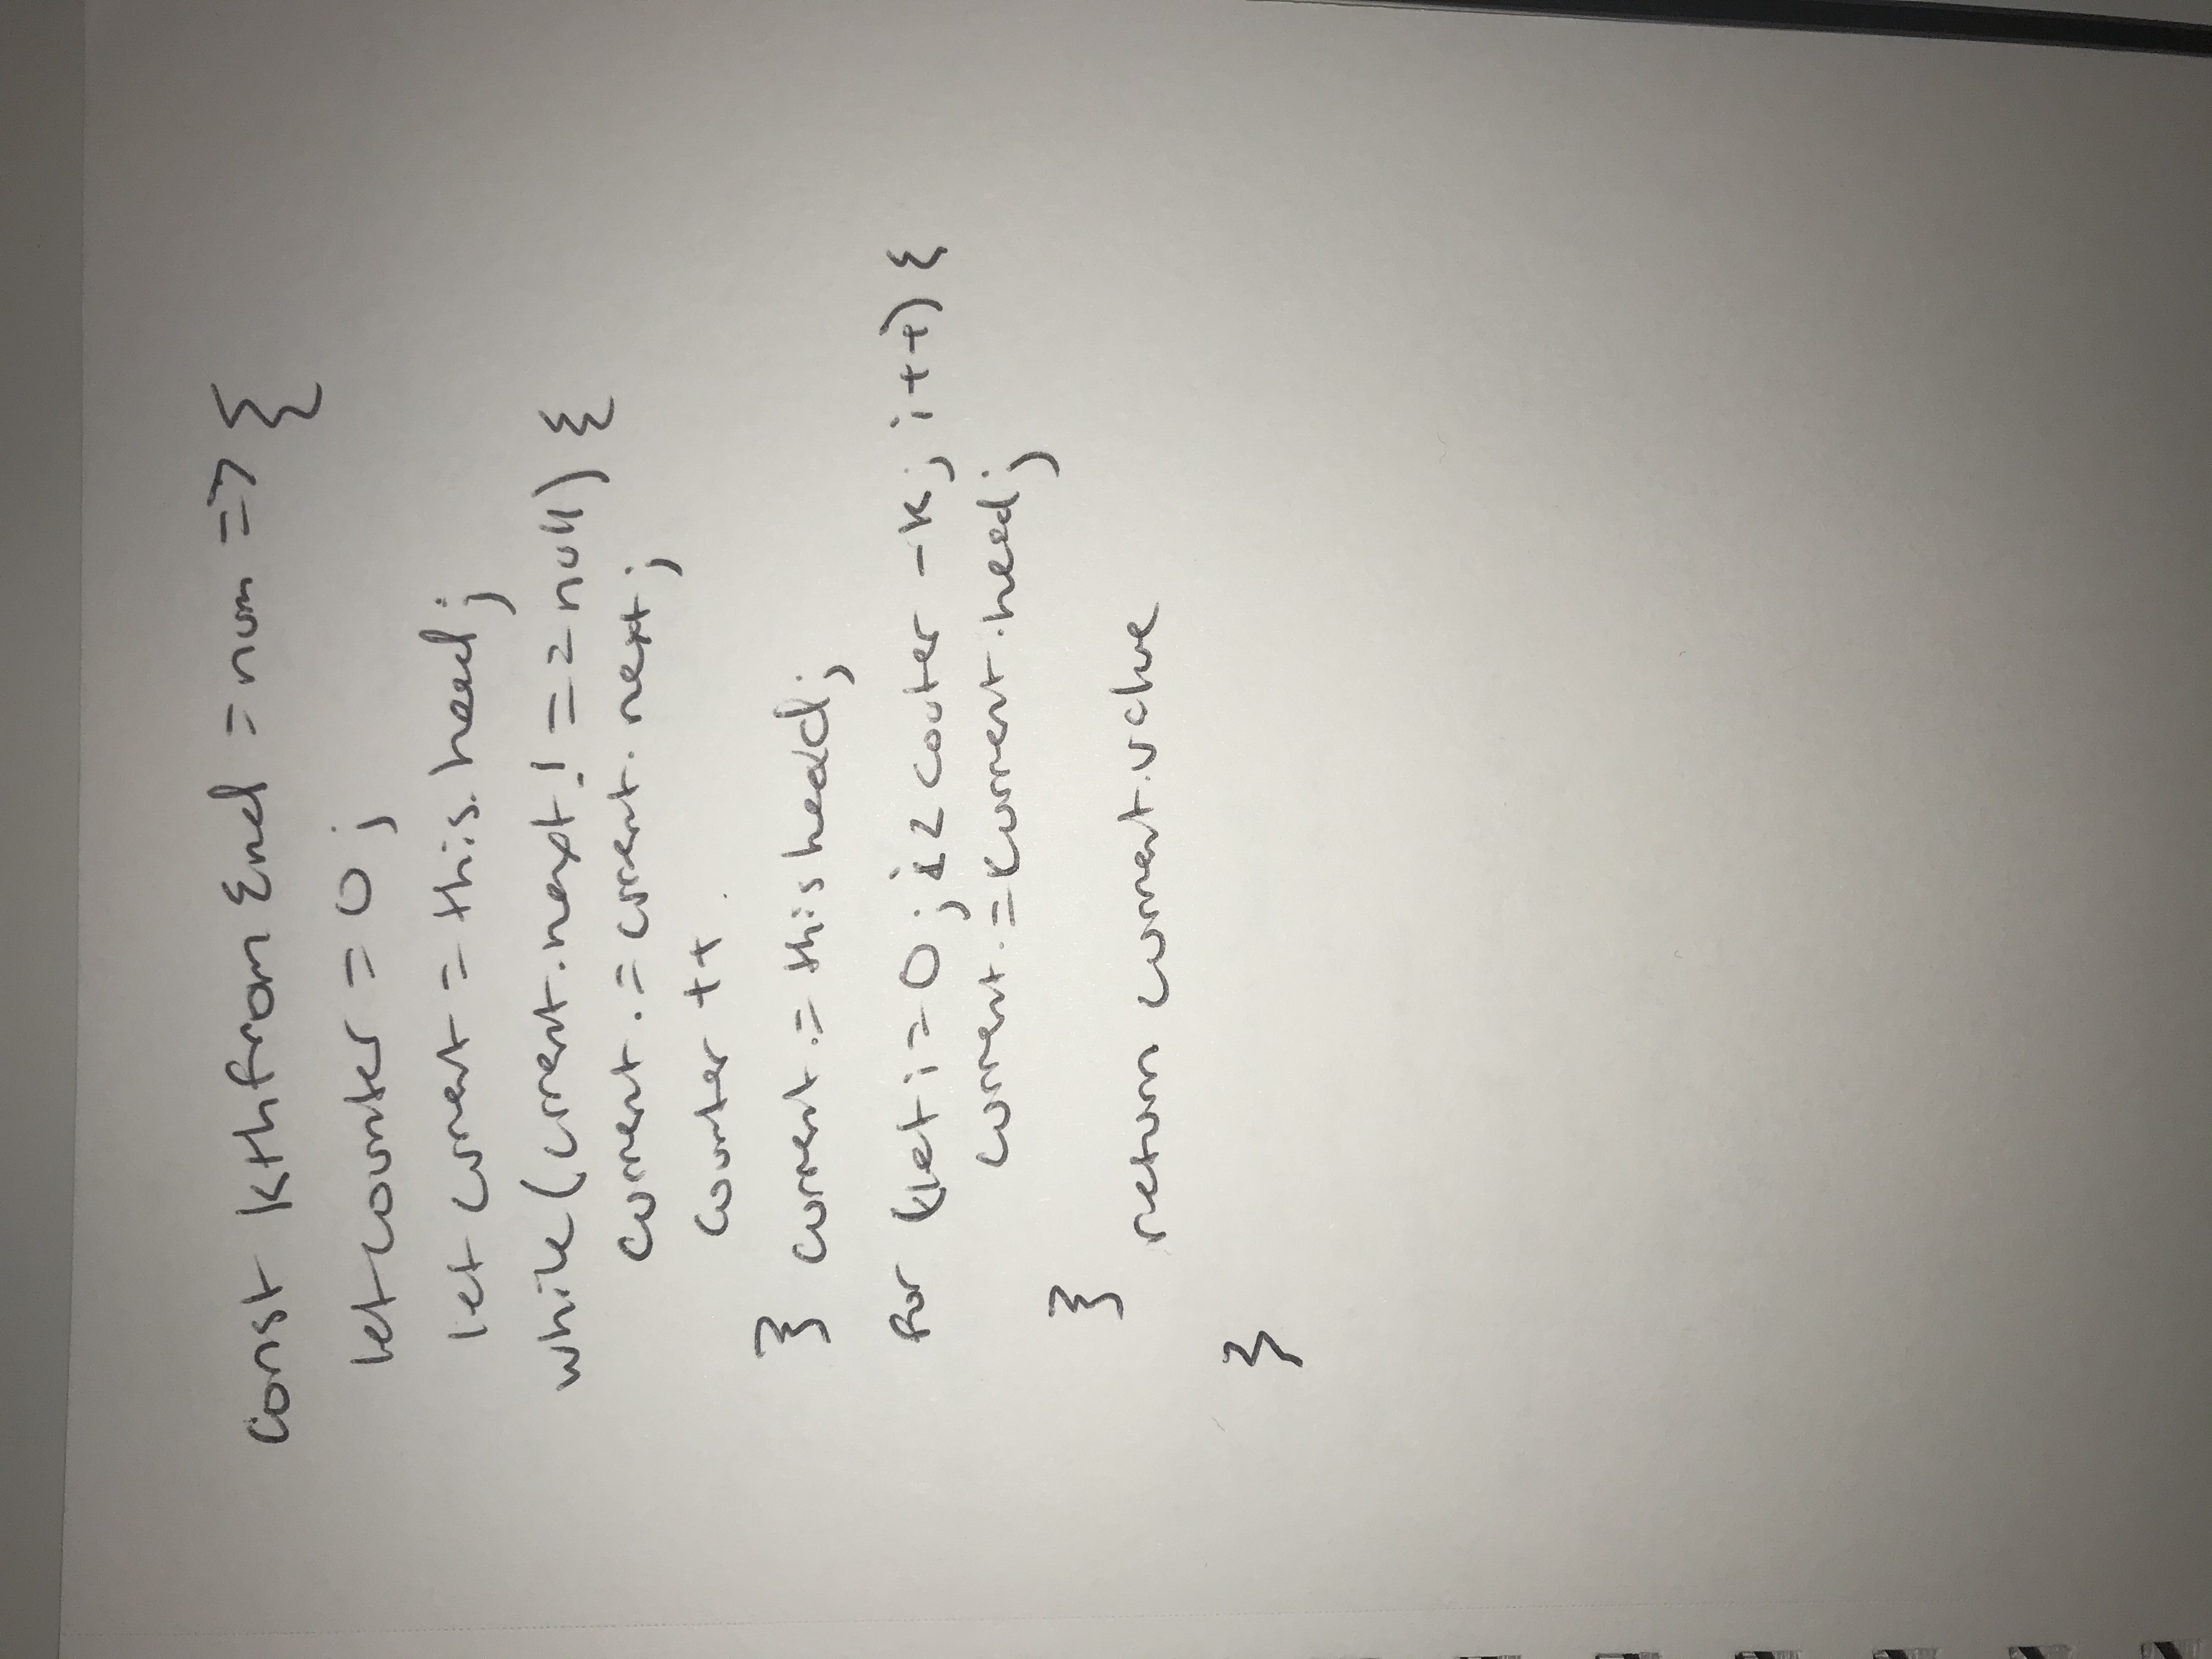 const kthfromEnd = num => {
let counter = 0;
let current = this.head;
while (current.next !== null) {
current .= current.next;
counter ++
} current .= this head;
for (let i = 0; i < couter - k; i++) {
current .= current.head;
}
return current.value
}